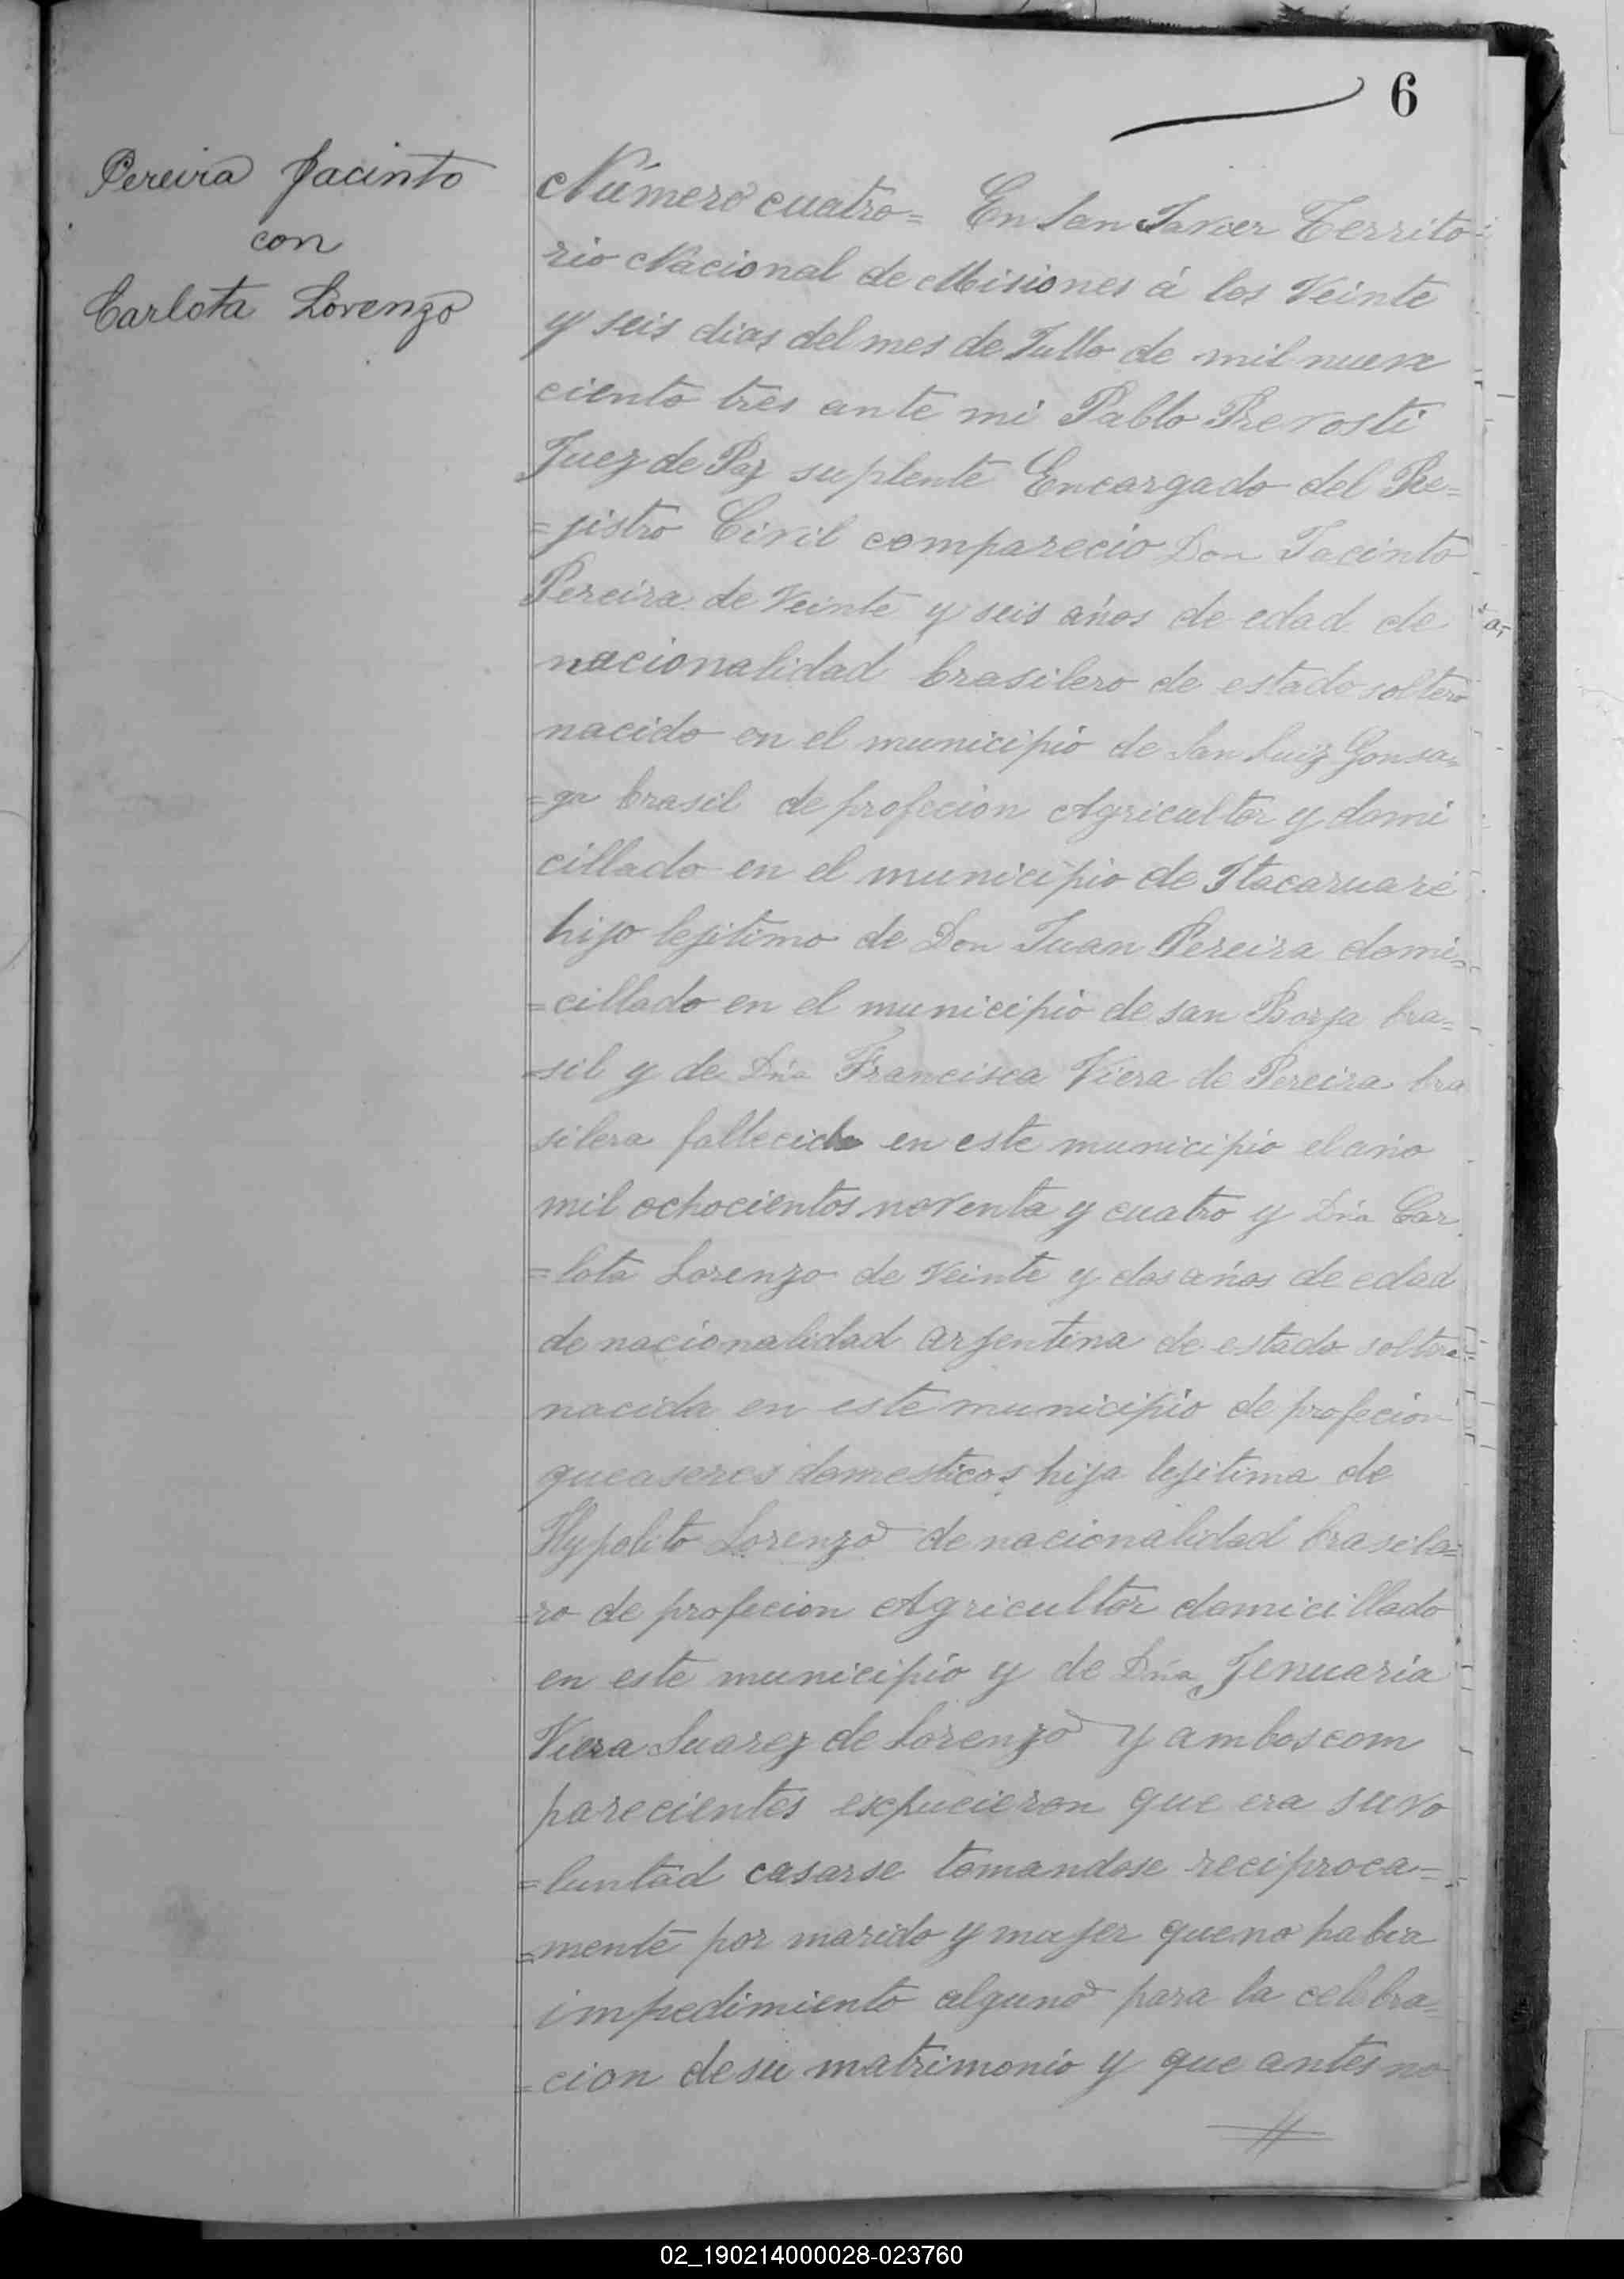 6
Pereira Jacinto
con
Carlota Lorenzo
Número cuatro= En San Javier Territo
rio Nacional de Misiones á los Veinte
y seis dias del mes de Jullo de mil nueve
ciento tres ante mi Pablo Prevosti
Juez de Paz suplente Encargado del Re=
=jistro Civil comparecio Don Jacinto
Pereira de Veinte y seis años de edad de
nacionalidad brasilero de estado soltero
nacido en el municipio de San Luiz Gonsa=
=ga brasil de profecion Agricultor y domi
cillado en el municipio de Itacaruaré
hijo lejitimo de Don Juan Pereira domi=
=cillado en el municipio de san Borja bra=
=sil y de Dña Francisca Viera de Pereira bra
silera fallecida en este municipio el año
mil ochocientos noventa y cuatro y Dña Car
=lota Lorenzo de Veinte y dos años de edad
de nacionalidad arjentina de estado soltera
nacida en este municipio de profecion
queaseres domesticos hija lejitima de
Hypolito Lorenzo de nacionalidad brasile=
=ro de profecion Agricultor domicillado
en este municipio y de Dña Jenuaria
Viera Suarez de Lorenzo y ambos com
parecientes expucieron que era su vo
=luntad casarse tomandose reciproca=
=mente por marido y mujer que no habia
impedimiento alguno para la celebra=
=cion de su matrimonio y que antes no
02_190214000028-023760